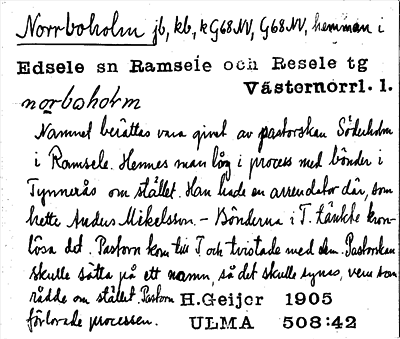 Norrboholm jb, kb, k G68NV, G68NV, hemman i
Edsele sn Ramsele och Resele tg
Västernorrl. l.
norboholm
Namnet berättas vara givet av pastorskan Söderholm
i Ramsele. Hennes man låg i process med bönder i
Tynnerås om stället. Han hade en arrendator där, som
hette Anders Mikelsson. – Bönderna i T. tänkte kron-
lösa det. Pastorn kom till T och tvistade med dem. Pastorskan
skulle sätta på ett namn, så det skulle synas, vem som
rådde om stället. Pastorn H.Geijer 1905
förlorade processen. ULMA 508:42